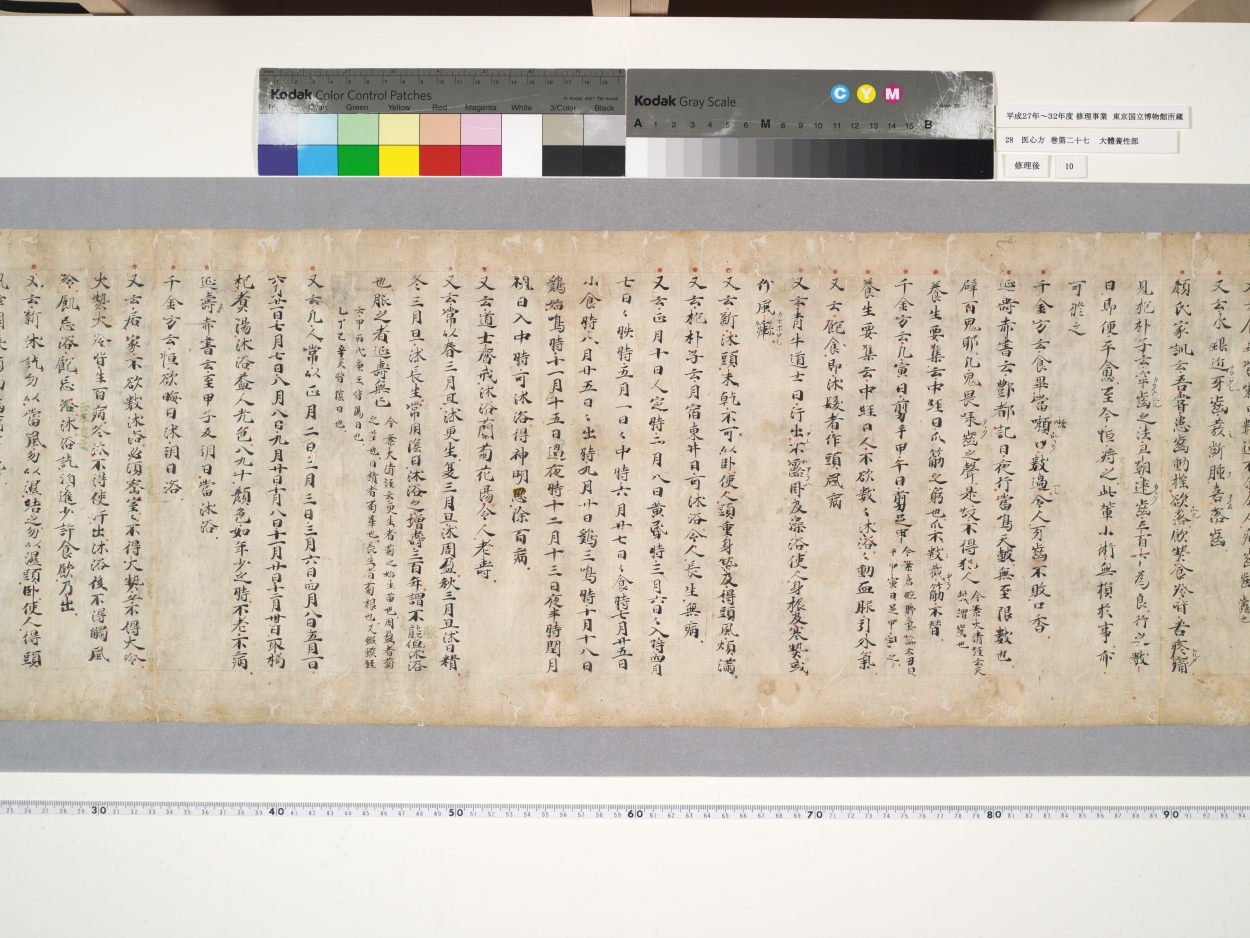 Kodak Color Control Patches
Cyan Green Yellow Red Magenta White 3/Color Black
Kodak Gray Scale
C Y M
A 1 2 3 4 5 6 M 8 9 10 11 12 13 14 15 B
平成27年～32年度 修理事業 東京国立博物館所蔵
28 医心方 巻第二十七 大體養性部
修理後 10
又云水銀近牙齒
顔氏家訓云吾嘗患齒動搖欲落飲熱食冷皆苦疼痛
見抱朴子云牢齒之法旦朝建齒三百下為良行之數
日即便平愈至今恒持之此輩小術無損於事亦
可脩之
千金方云食畢當嗽口數過令人牙齒不敗口香
延壽赤書云酆都記曰夜行當鳴天皷無至限數也
辟百鬼耶凡鬼畏啄齒之聲是故不得犯人
養生要集云中經曰爪筋之窮也爪不數截筋不替
千金方云凡寅日剪手甲午日剪足甲
養生要集云中經曰人不欲數數沐浴數動血脈引外氣
又云飽食即沐髮者作頭風病
又云青牛道士曰行出汗不露卧及澡浴使人身振及寒熱或
作風癮
又云新沐頭未乾不可以卧使人頭重身熱及得頭風煩滿
又云抱朴子云月宿東井日可沐浴令人長生無病
又云正月十日人定時二月八日黃昏時三月六日日入時四月
七日日昳時五月一日日中時六月廿七日日食時七月廿五日
小食時八月廿五日日出時九月廿日鷄三鳴時十月十八日
鷄始鳴時十一月十五日過夜時十二月十三日夜半時閏月
視日入中時可沐浴得神明恩除百病
又云道士齋戒沐浴蘭菊花湯令人老壽
又云常以春三月旦沐更生夏三月旦沐周盈秋三月旦沐日精
冬三月旦沐長生常用陰日沐浴之增壽三百年謂不能俱沐浴
也服之者延壽無已
乙丁己辛癸皆陰日也
又云凡人常以正月二日二月三日三月六日四月八日五月一日
六月廿一日七月七日八月八日九月廿日十月八日十一月廿日十二月卅日取枸
杞煮湯沐浴益人光色八九十顔色如年少之時不老不病
延壽赤書云至甲子及朔日當沐浴
千金方云恒欲晦日沐朔日浴
又云居家不欲數沐浴必須密室室不得大熱亦不得大冷
大熱大冷皆生百病冬沐不得使汗出沐浴後不得觸風
冷飢忌浴飽忌沐浴沐訖須進少許食飲乃出
又云新沐訖勿以當風勿以濕結之勿以濕頭卧使人得頭
30 40 50 60 70 80 90